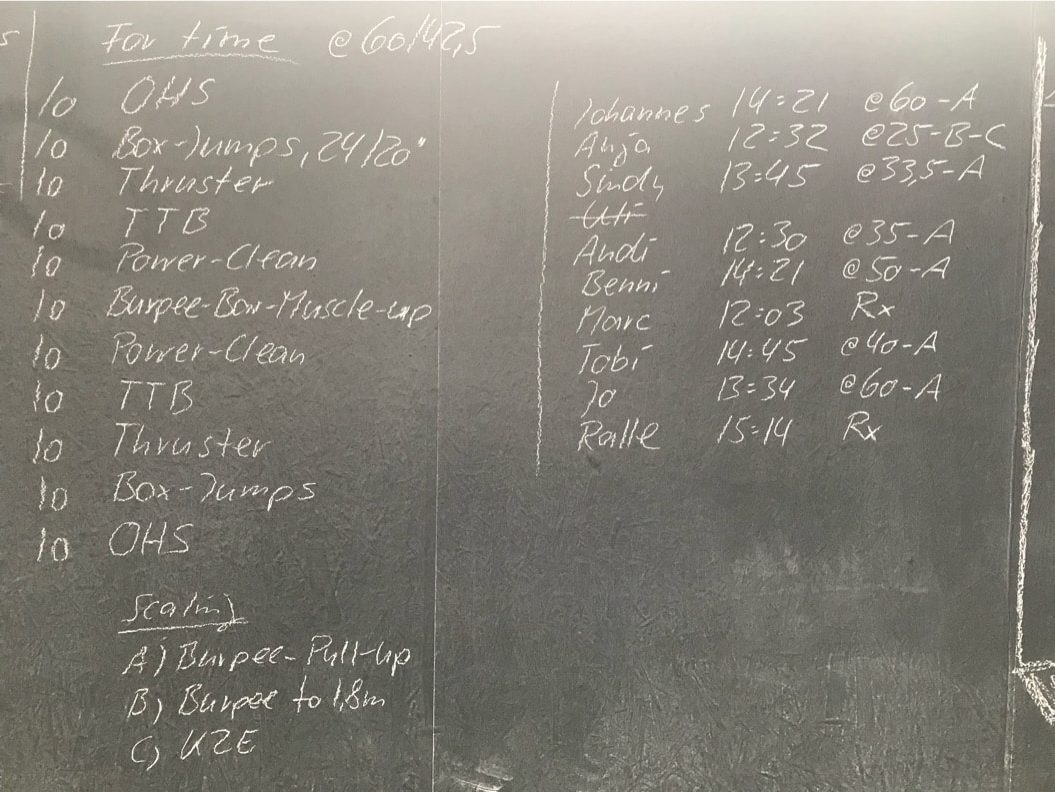 For time @60/42,5
10 OHS
10 Box-Jumps, 24/20"
10 Thruster
10 TTB
10 Power-Clean
10 Burpee-Box-Muscle-up
10 Power-Clean
10 TTB
10 Thruster
10 Box-Jumps
10 OHS
Scaling
A) Burpee-Pull-up
B) Burpee to 1,8m
C) K2E
Johannes 14:21 @60-A
Anja 12:32 @25-B-C
Sindy 13:45 @33,5-A
Andi 12:30 @35-A
Benni 14:21 @50-A
Marc 12:03 Rx
Tobi 14:45 @40-A
Jo 13:34 @60-A
Ralle 15:14 Rx